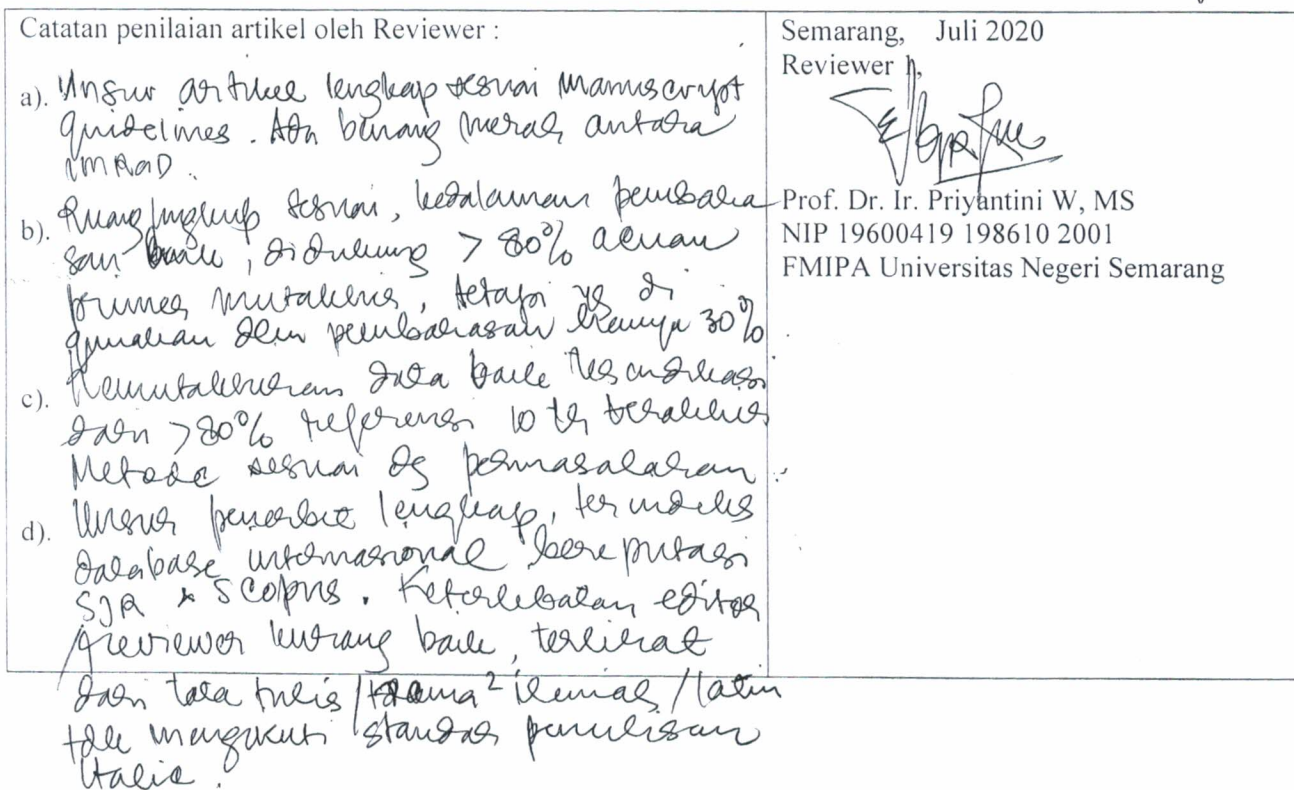 Catatan penilaian artikel oleh Reviewer :
a). Unsur artikel lengkap sesuai manuscript
guidelines. Ada benang merah antara
IMRAD.
b). Ruang lingkup sesuai, kedalaman pembaha
san baik, didukung > 80% acuan
primer mutakhir, tetapi yg di
gunakan dlm pembahasan hanya 30%
c). Kemutakhiran data baik terindikasi
dari >80% referensi 10 th terakhir
Metode sesuai dg permasalahan
d). Unsur penerbit lengkap, terindeks
database internasional bereputasi
SJR & Scopus. Keterlibatan editor
/reviewer kurang baik, terlihat
dari tata tulis / nama² ilmiah / latin
tdk mengikuti standar penulisan
Italic.
Semarang, Juli 2020
Reviewer
Prof. Dr. Ir. Priyantini W, MS
NIP 19600419 198610 2001
FMIPA Universitas Negeri Semarang